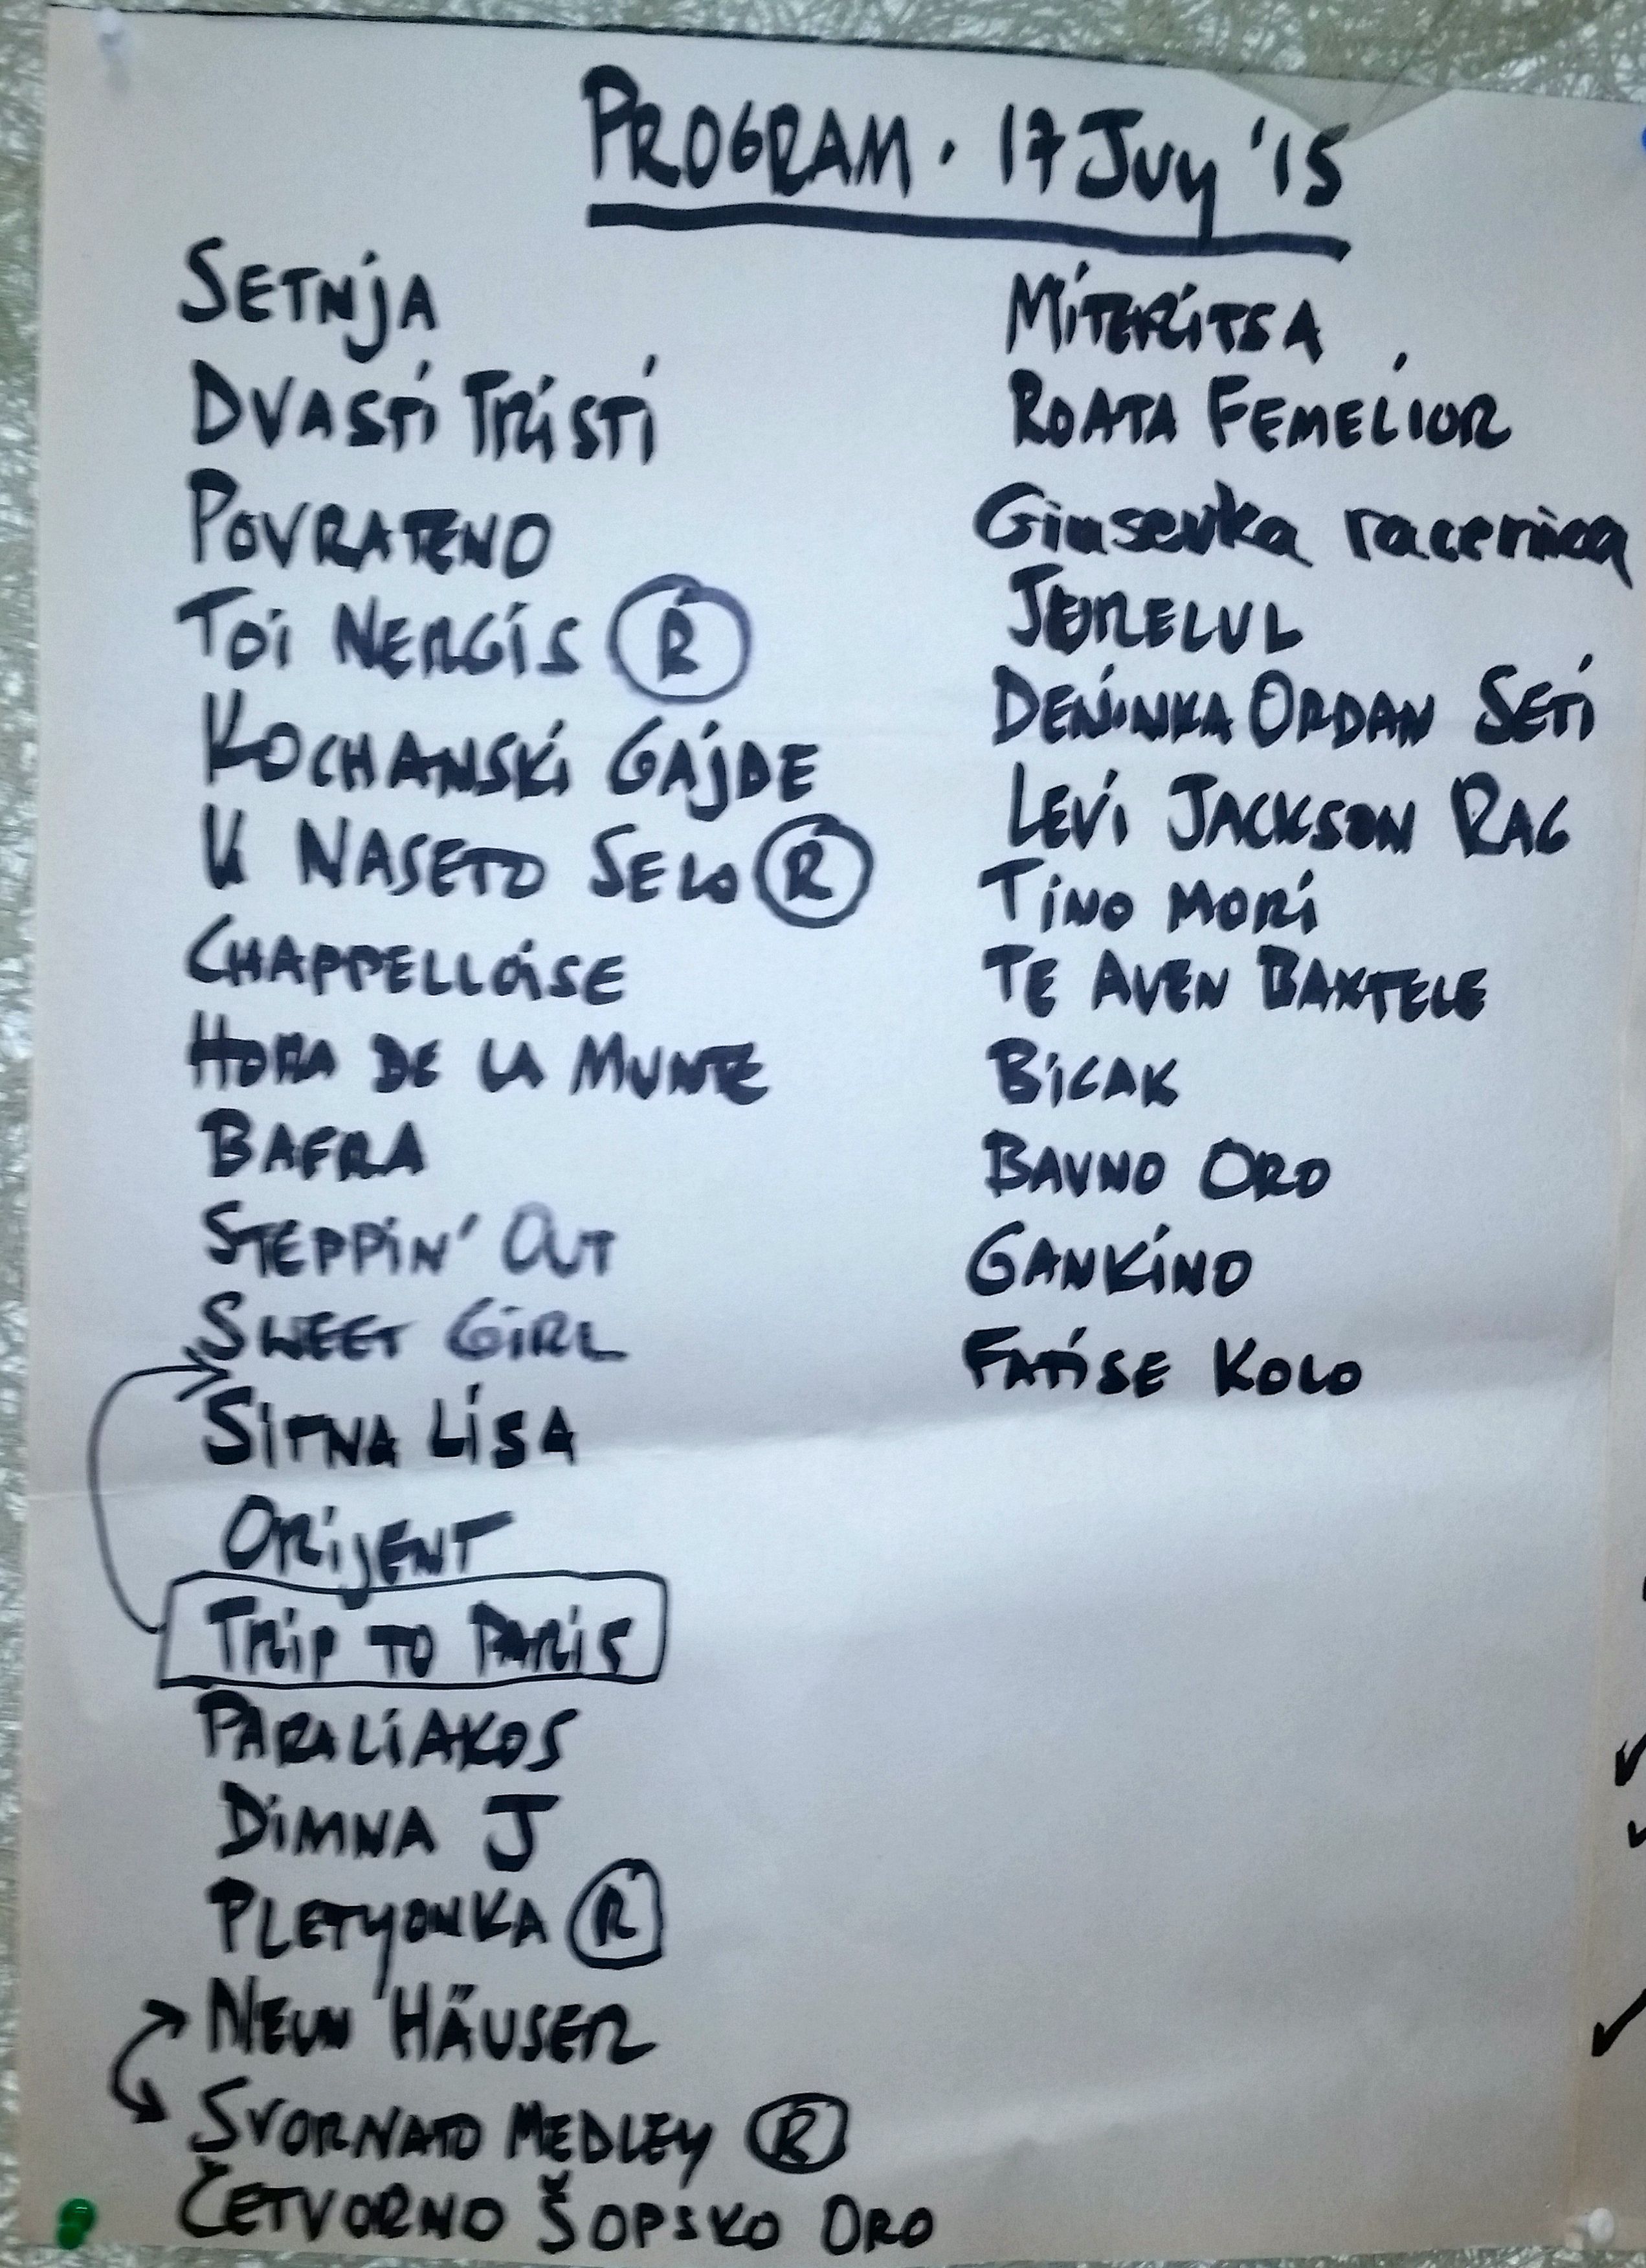 PROGRAM · 17 JUly '15
SETNJA
DVASTI TRISTI
POVRATENO
TOI NERGIS R
KOCHANSKI GAJDE
U NASETO SELO R
CHAPPELLOISE
HORA DE LA MUNTE
BAFRA
STEPPIN' OUT
SWEET GIRL
SITNA LISA
ORIJENT
TRIP TO PARIS
PARALIAKOS
DIMNA J
PLETYONKA R
NEUN HÄUSER
SVORNATO MEDLEY R
ČETVORNO ŠOPSKO ORO
MITERITSA
ROATA FEMEILOR
Giusevka racenica
JORELUL
DENINKA ORDAN SETI
LEVI JACKSON RAG
TINO MORI
TE AVEN BAXTELE
BICAK
BAVNO ORO
GANKINO
FATISE KOLO